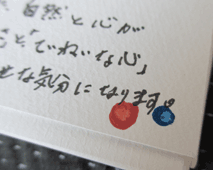 自然と心が
と「ていねいな心」
な気分になります。